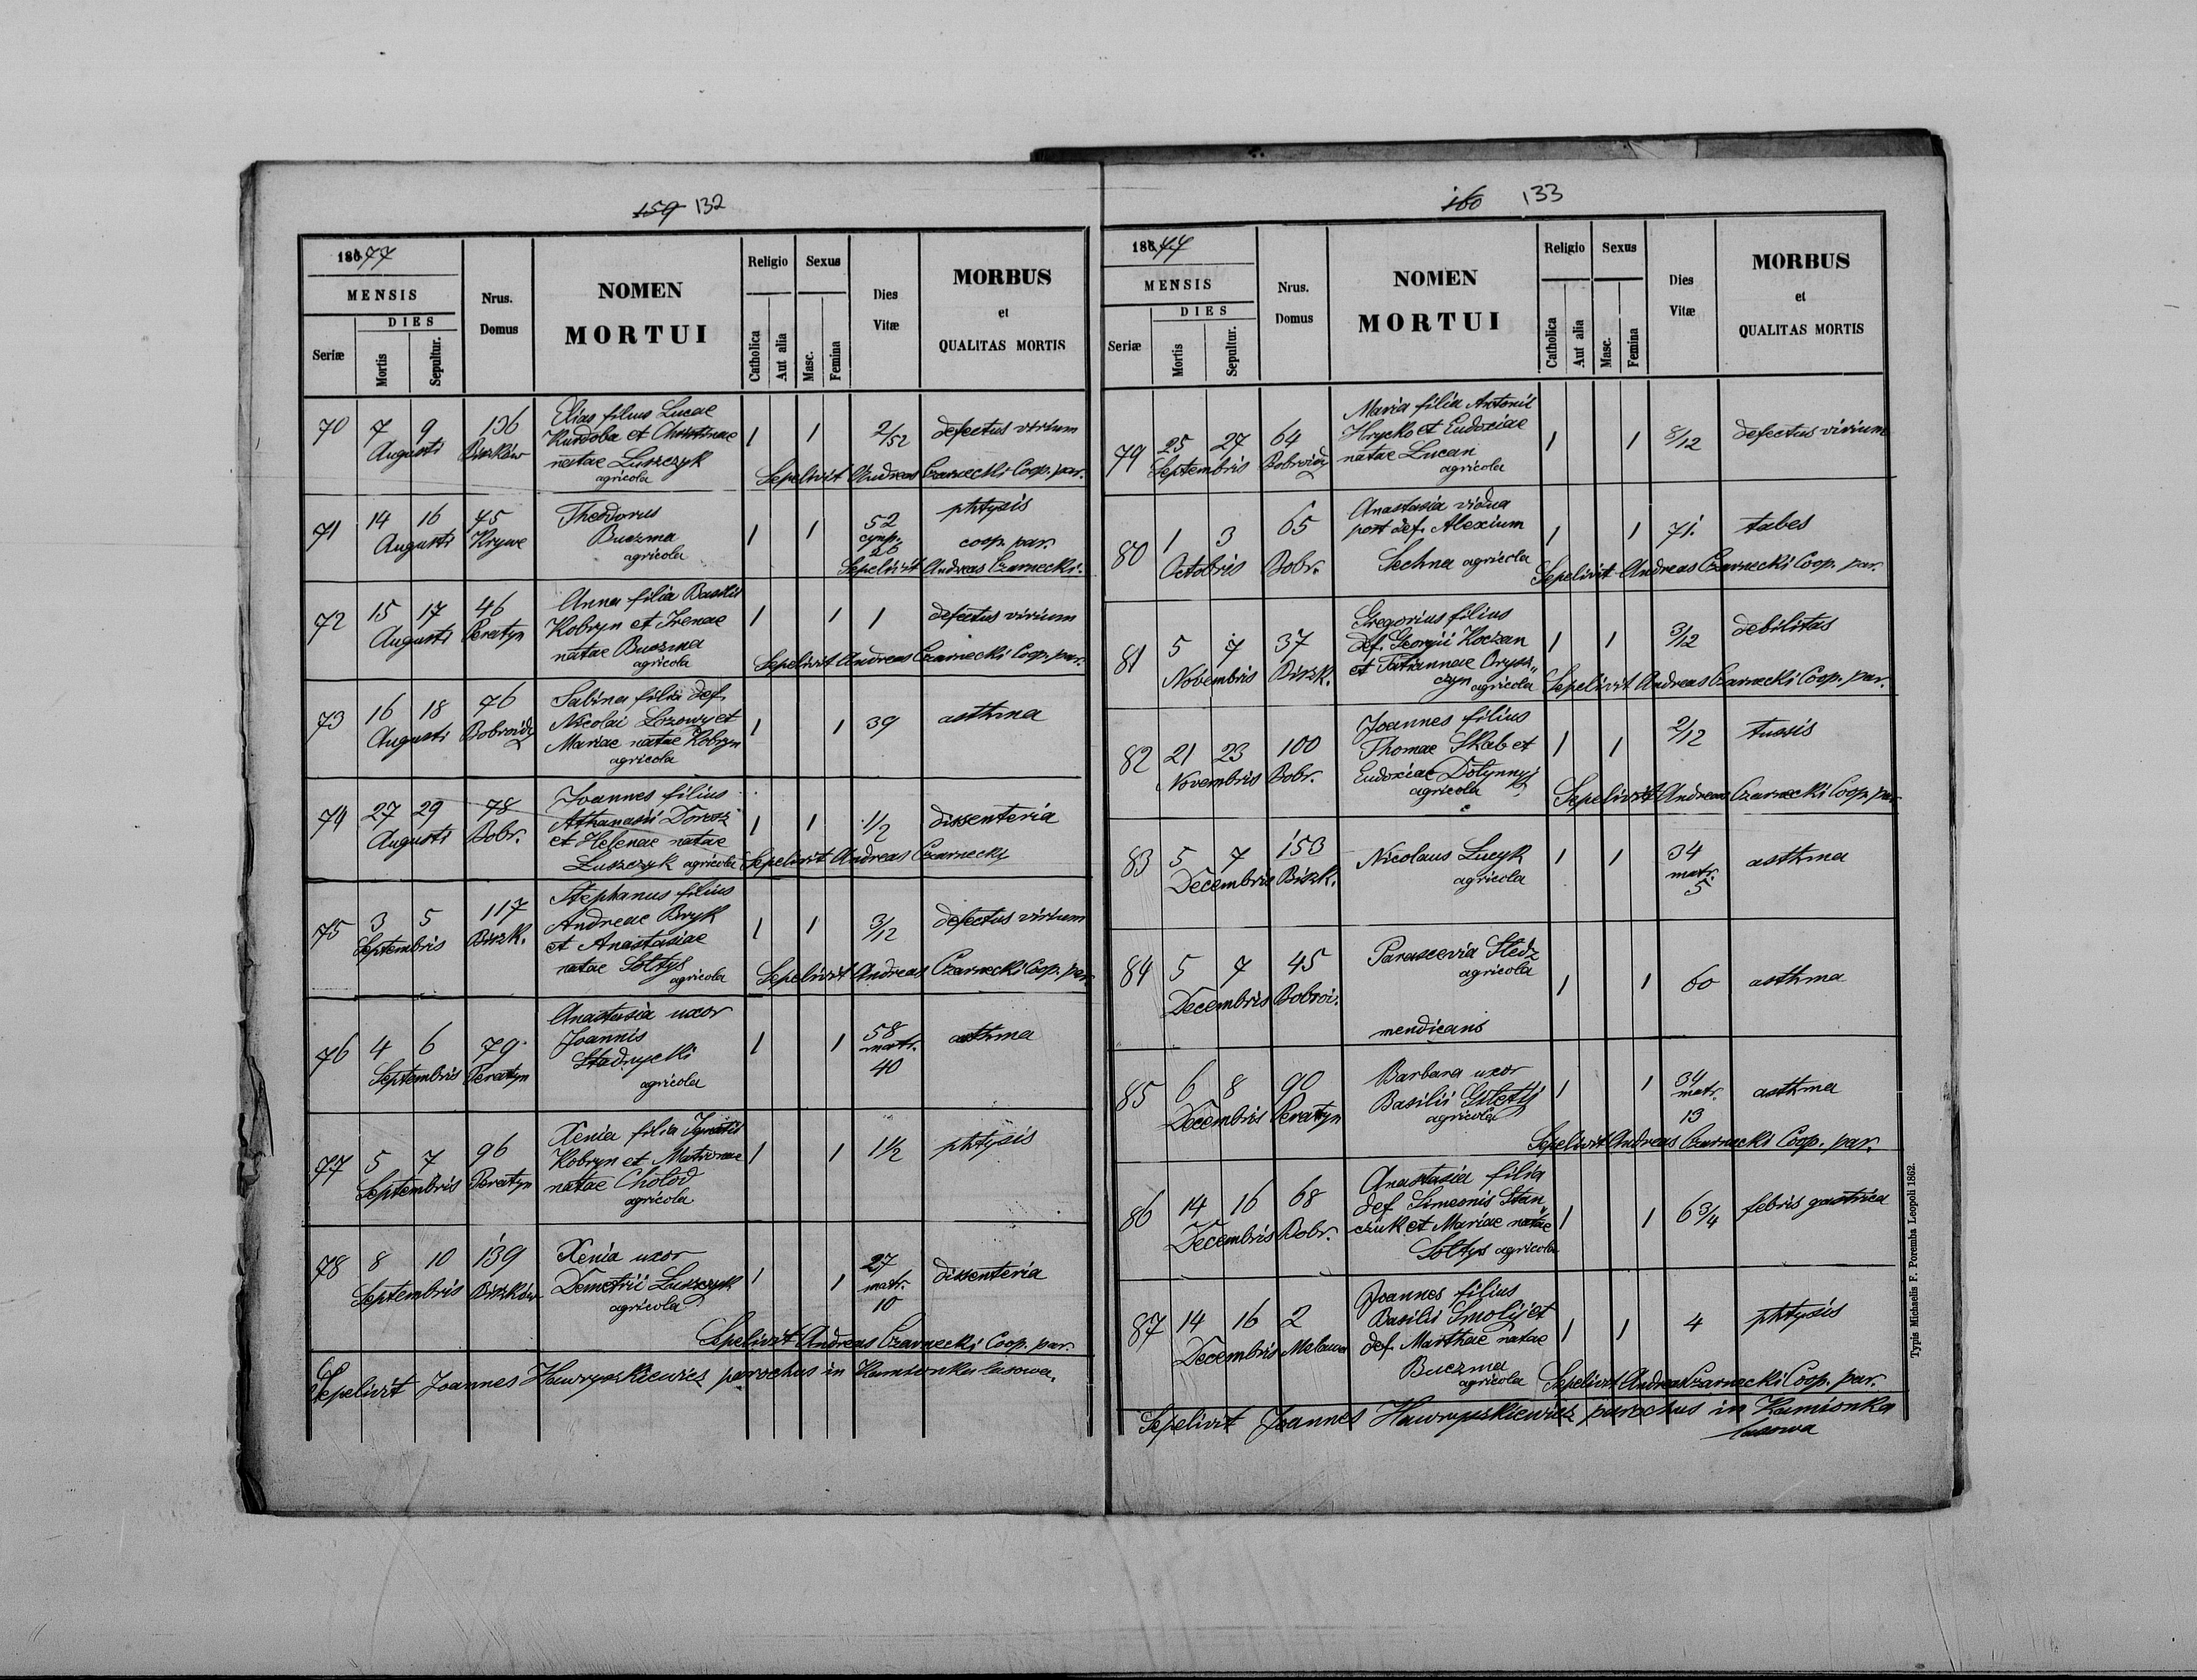 159 132
18677
MENSIS
DIES
Seriæ
Mortis
Sepultur.
Nrus.
Domus
NOMEN
MORTUI
Religio
Sexus
Catholica
Aut alia
Masc.
Femina
Dies
Vitæ
MORBUS
et
QUALITAS MORTIS
70 7 9 136
Augusti Biszków
Elias filius Lucae
Kurdoba et Christinae
natae Luszczyk
agricola
1 1 2/52 defectus virium
Sepelivit Andreas Czarnecki Coop. par.
71 14 16 45
Augusti Krywe
Theodorus
Buczma
agricola
1 1 52
26
phtysis
coop. par.
Sepelivit Andreas Czarnecki.
72 15 17 46
Augusti Peratyn
Anna filia Basilii
Kobryn et Irenae
natae Buczma
agricola
1 1 1 defectus virium
Sepelivit Andreas Czarnecki Coop. par.
73 16 18 76
Augusti Bobroidy
Sabina filia def.
Nicolai Lozowy et
Mariae natae Kobryn
agricola
1 1 39 asthma
74 27 29 78
Augusti Bobr.
Joannes filius
Athanasii Dorosz
et Helenae natae
Luszczyk agricola
1 1 1/2 dissenteria
Sepelivit Andreas Czarnecki
75 3 5 117
Septembris Biszk.
Stephanus filius
Andreae Bryk
et Anastasiae
natae Soltys
agricola
1 1 3/12 defectus virium
Sepelivit Andreas Czarnecki Coop. par.
76 4 6 79
Septembris Peratyn
Anastasia uxor
Joannis
Stadnycki
agricola
1 1 58
matr.
40
asthma
77 5 7 96
Septembris Peratyn
Xenia filia Ignatii
Kobryn et Matronae
natae Cholod
agricola
1 1 1 1/2 phtysis
78 8 10 139
Septembris Biszków
Xenia uxor
Demetrii Luszczyk
agricola
1 1 27
matr.
10
dissenteria
Sepelivit Andreas Czarnecki Coop. par.
Sepelivit Joannes Hawryszkiewicz parochus in Kamionka lasowa.
160 133
18677
MENSIS
DIES
Seriæ
Mortis
Sepultur.
Nrus.
Domus
NOMEN
MORTUI
Religio
Sexus
Catholica
Aut alia
Masc.
Femina
Dies
Vitæ
MORBUS
et
QUALITAS MORTIS
79 25 27 64
Septembris Bobroidy
Maria filia Antonii
Hrycko et Eudoxiae
natae Lucan
agricola
1 1 8/12 defectus virium
80 1 3 65
Octobris Bobr.
Anastasia vidua
post def. Alexium
Sechna agricola
1 1 71. tabes
Sepelivit Andreas Czarnecki Coop. par.
81 5 7 37
Novembris Biszk.
Gregorius filius
def. Georgii Koczan
et Tatiannae Orysz„
czyn agricola
1 1 3/12 debilitas
Sepelivit Andreas Czarnecki Coop. par.
82 21 23 100
Novembris Bobr.
Joannes filius
Thomae Skab et
Eudoxiae Dolynnyj
agricola
1 1 2/12 tussis
Sepelivit Andreas Czarnecki Coop. par
83 5 7 153
Decembris Biszk.
Nicolaus Lucyk
agricola
1 1 34
matr.
5
asthma
84 5 7 45
Decembris Bobroi.
Parascevia Fledz
agricola
mendicans
1 1 60 asthma
85 6 8 90
Decembris Peratyn
Barbara uxor
Basilii
agricola
1 1 34
matr.
13
asthma
Sepelivit Andreas Czarnecki Coop. par.
86 14 16 68
Decembris Bobr.
Anastasia filia
def Simeonis Stan„
czuk et Mariae natae
Soltys agricola
1 1 6 3/4 febris gastrica
87 14 16 2
Decembris
Joannes filius
Basilii Smolij et
def. Marthae natae
Buczma
agricola
1 1 4 phtysis
Sepelivit Andreas Czarnecki Coop. par.
Sepelivit Joannes Hawryszkiewicz parochus in Kamionka
lasowa
Typis Michaelis F. Poremba Leopoli 1862.